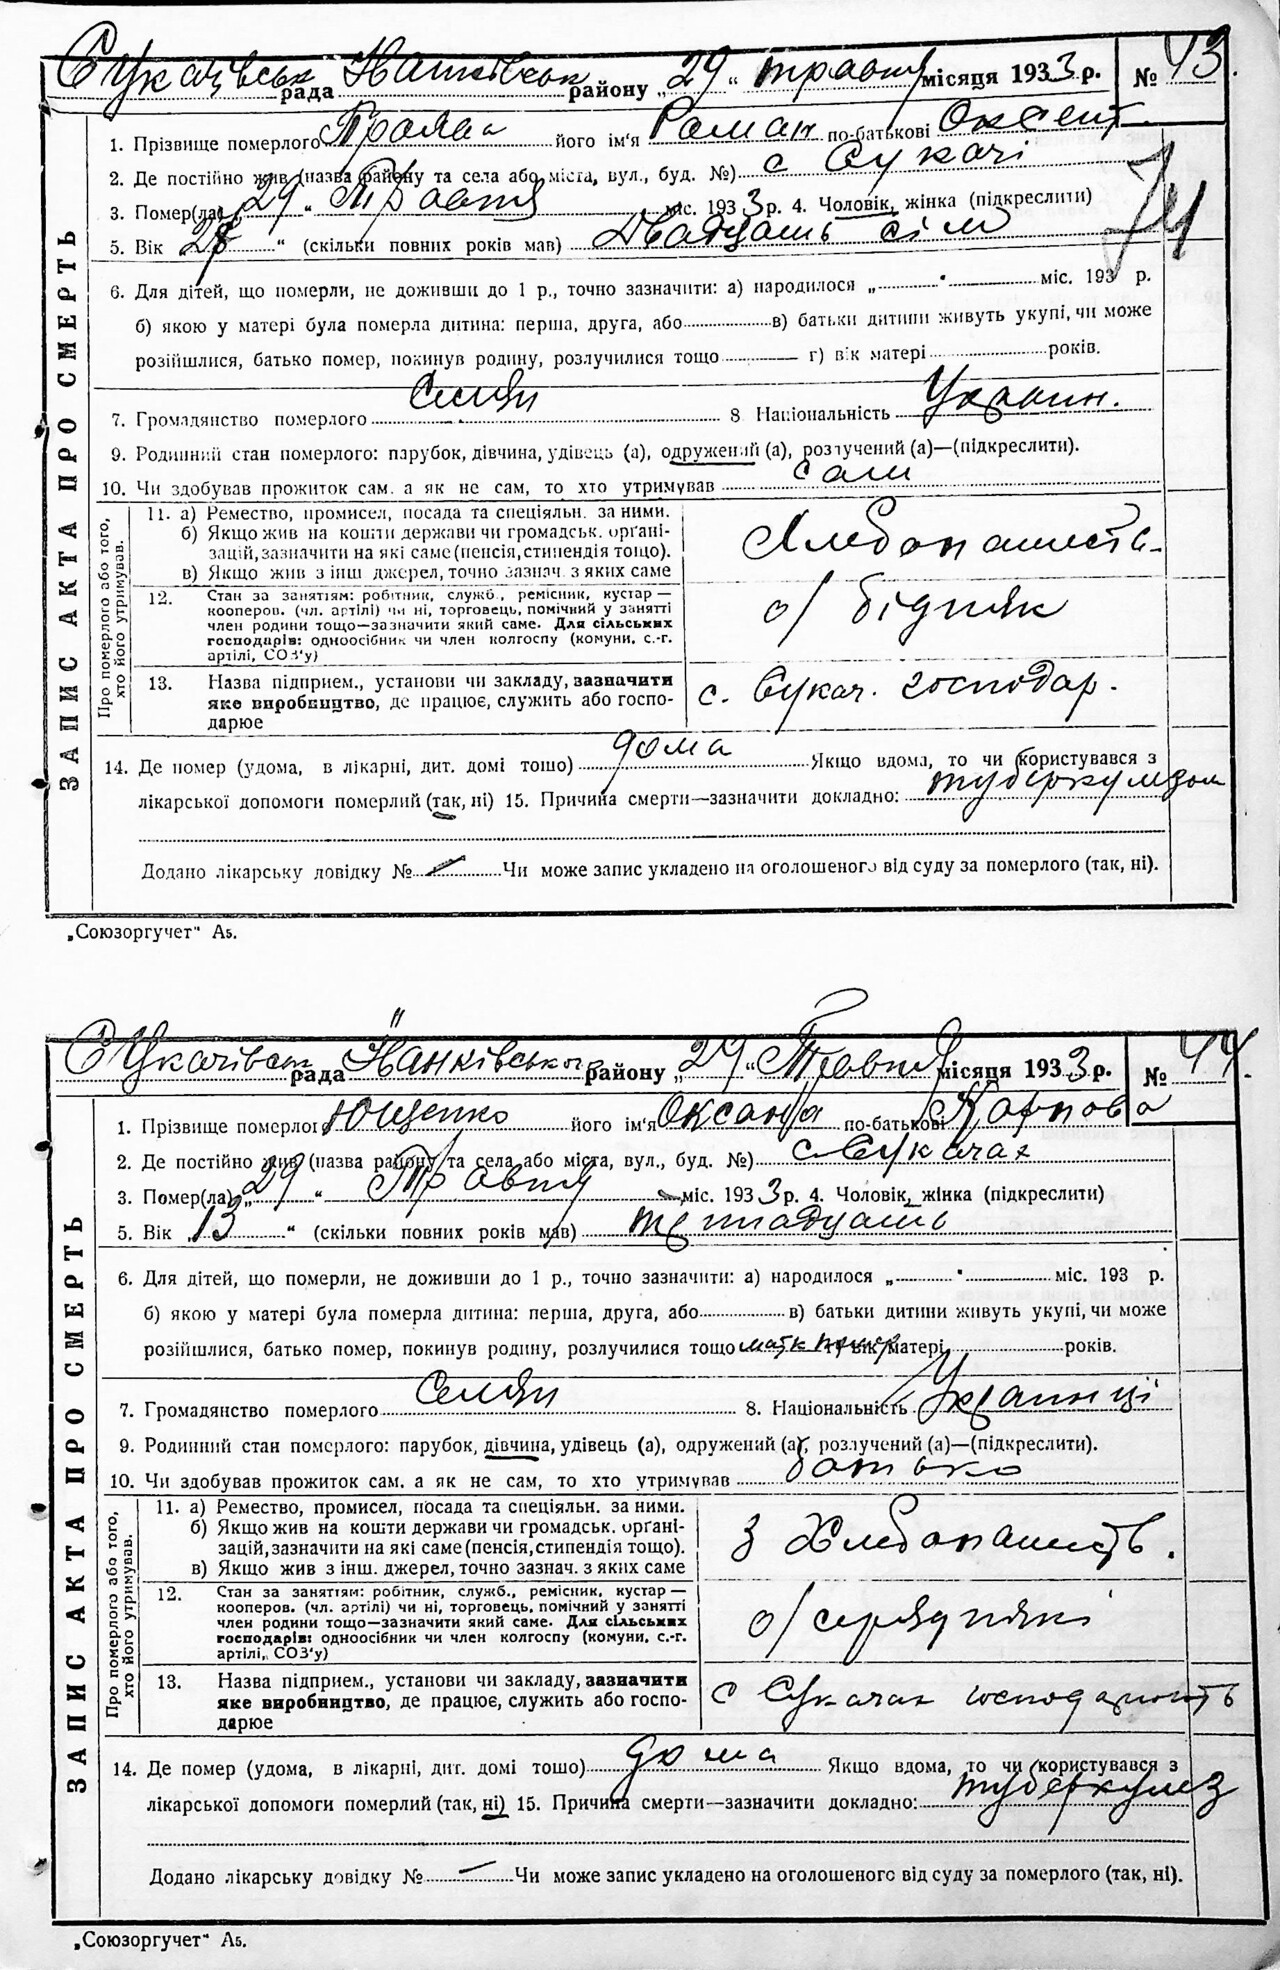 Сукачівськ рада Іванківськ району „29“ травня місяця 1933 р. № 43.
1. Прізвище померлого його ім'я Роман по-батькові Оксент.
2. Де постійно жив (назва району та села або міста, вул., буд. №) с Сукачі
3. Помер(ла) „29“ Травня міс. 1933 р. 4. Чоловік, жінка (підкреслити)
74
5. Вік 27 “ (скільки повних років мав) Двадцать сім
6. Для дітей, що померли, не доживши до 1 р., точно зазначити: а) народилося „ “ міс. 193 р.
б) якою у матері була померла дитина: перша, друга, або в) батьки дитини живуть укупі, чи може
розійшлися, батько помер, покинув родину, розлучилися тощо г) вік матері років.
7. Громадянство померлого Селян 8 Національність Украин.
9. Родинний стан померлого: парубок, дівчина, удівець (а), одружений (а), розлучений (а)—(підкреслити).
10. Чи здобував прожиток сам. а як не сам, то хто утримував сам
Про померлого або того, хто його утримував.
11. а) Ремество, промисел, посада та спеціяльн. за ними.
б) Якщо жив на кошти держави чи громадськ. органі-
зацій, зазначити на які саме (пенсія, стипендія тощо).
в) Якщо жив з інш джерел, точно зазнач. з яких саме
Хлебопашеств-
12. Стан за занятіям: робітник, служб., ремісник, кустар —
кооперов. (чл. артілі) чи ні, торговець, помічний у занятті
член родини тощо—зазначити який саме. Для сільських
господарів: одноосібник чи член колгоспу (комуни, с.-г.
артілі, СОЗ'у)
о/ бідняк
13. Назва підприєм., установи чи закладу, зазначити
яке виробництво, де працює, служить або госпо-
дарює
с. Сукач. господар.
14. Де помер (удома, в лікарні, дит. домі тощо) дома Якщо вдома, то чи користувався з
лікарської допомоги померлий (так, ні) 15. Причина смерти—зазначити докладно: туберкульзом
Додано лікарську довідку № Чи може запис укладено на оголошеного від суду за померлого (так, ні).
ЗАПИС АКТА ПРО СМЕРТЬ
„Союзоргучет“ А5.
Сукачівськ рада Іванківського району „29“ Травня місяця 1933 р. № 44.
1. Прізвище померлого Ющенко його ім'я Оксана по-батькові Карпова
2. Де постійно жив (назва району та села або міста, вул., буд. №) с Сукачах
3. Помер(ла) „29“ Травня міс. 1933 р. 4. Чоловік, жінка (підкреслити)
5. Вік 13 “ (скільки повних років мав) тринадцать
6. Для дітей, що померли, не доживши до 1 р., точно зазначити: а) народилося „ “ міс. 193 р.
б) якою у матері була померла дитина: перша, друга, або в) батьки дитини живуть укупі, чи може
розійшлися, батько помер, покинув родину, розлучилися тощо г) вік матері років.
7. Громадянство померлого Селян 8. Національність Украинці
9. Родинний стан померлого: парубок, дівчина, удівець (а), одружений (а), розлучений (а)—(підкреслити).
10. Чи здобував прожиток сам. а як не сам, то хто утримував батько
Про померлого або того, хто його утримував.
11. а) Ремество, промисел, посада та спеціяльн. за ними.
б) Якщо жив на кошти держави чи громадськ. органі-
зацій, зазначити на які саме (пенсія, стипендія тощо).
в) Якщо жив з інш. джерел, точно зазнач. з яких саме
З Хлебопашеств.
12. Стан за занятіям: робітник, служб., ремісник, кустар —
кооперов. (чл. артілі) чи ні, торговець, помічний у занятті
член родини тощо—зазначити який саме. Для сільських
господарів: одноосібник чи член колгоспу (комуни, с.-г.
артілі, СОЗ'у)
о/ середняки
13. Назва підприєм., установи чи закладу, зазначити
яке виробництво, де працює, служить або госпо-
дарює
с Сукачах
14. Де помер (удома, в лікарні, дит. домі тощо) дома Якщо вдома, то чи користувався з
лікарської допомоги померлий (так, ні) 15. Причина смерти—зазначити докладно: туберкулез
Додано лікарську довідку № Чи може запис укладено на оголошеного від суду за померлого (так, ні).
ЗАПИС АКТА ПРО СМЕРТЬ
„Союзоргучет“ А5.